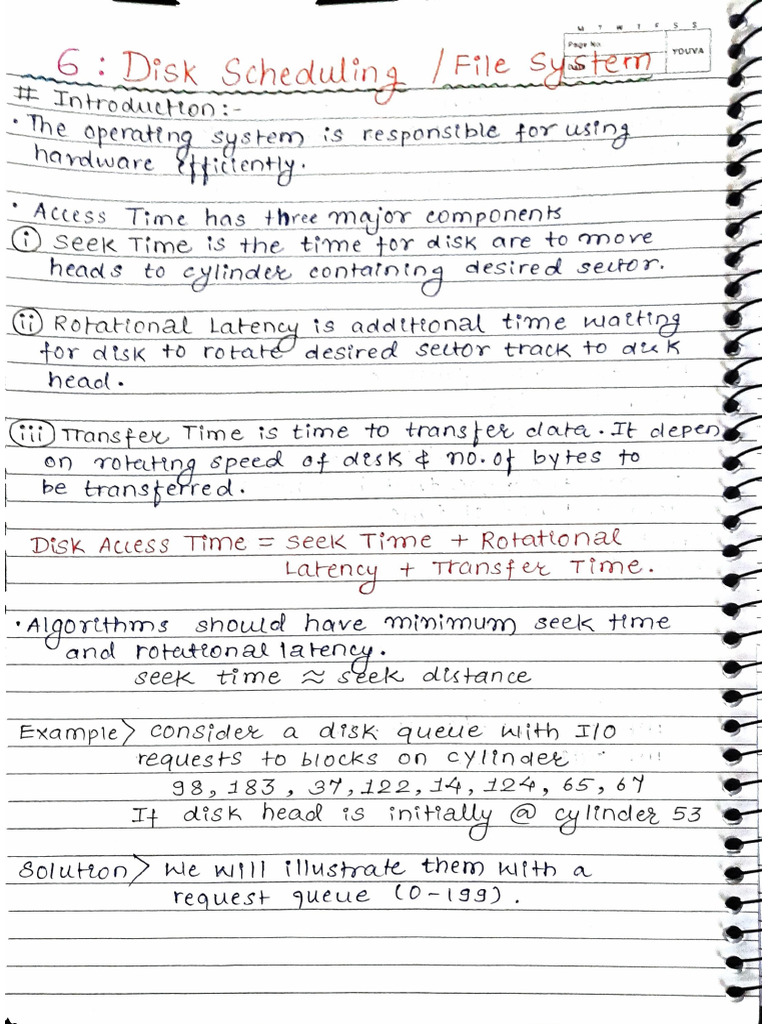 M T W T F S S
Page No.
YOUVA
6 : Disk Scheduling / File System
# Introduction :-
• The operating system is responsible for using
hardware efficiently.
• Access Time has three major components
(i) Seek Time is the time for disk are to move
heads to cylinder containing desired sector.
(ii) Rotational Latency is additional time waiting
for disk to rotate desired sector track to disk
head.
(iii) Transfer Time is time to transfer data. It depen
on rotating speed of disk & no. of bytes to
be transferred.
Disk Access Time = Seek Time + Rotational
Latency + Transfer Time.
• Algorithms should have minimum seek time
and rotational latency.
seek time ≈ seek distance
Example> consider a disk queue with I/O
requests to blocks on cylinder
98, 183, 37, 122, 14, 124, 65, 67
If disk head is initially @ cylinder 53
Solution> We will illustrate them with a
request queue (0-199).